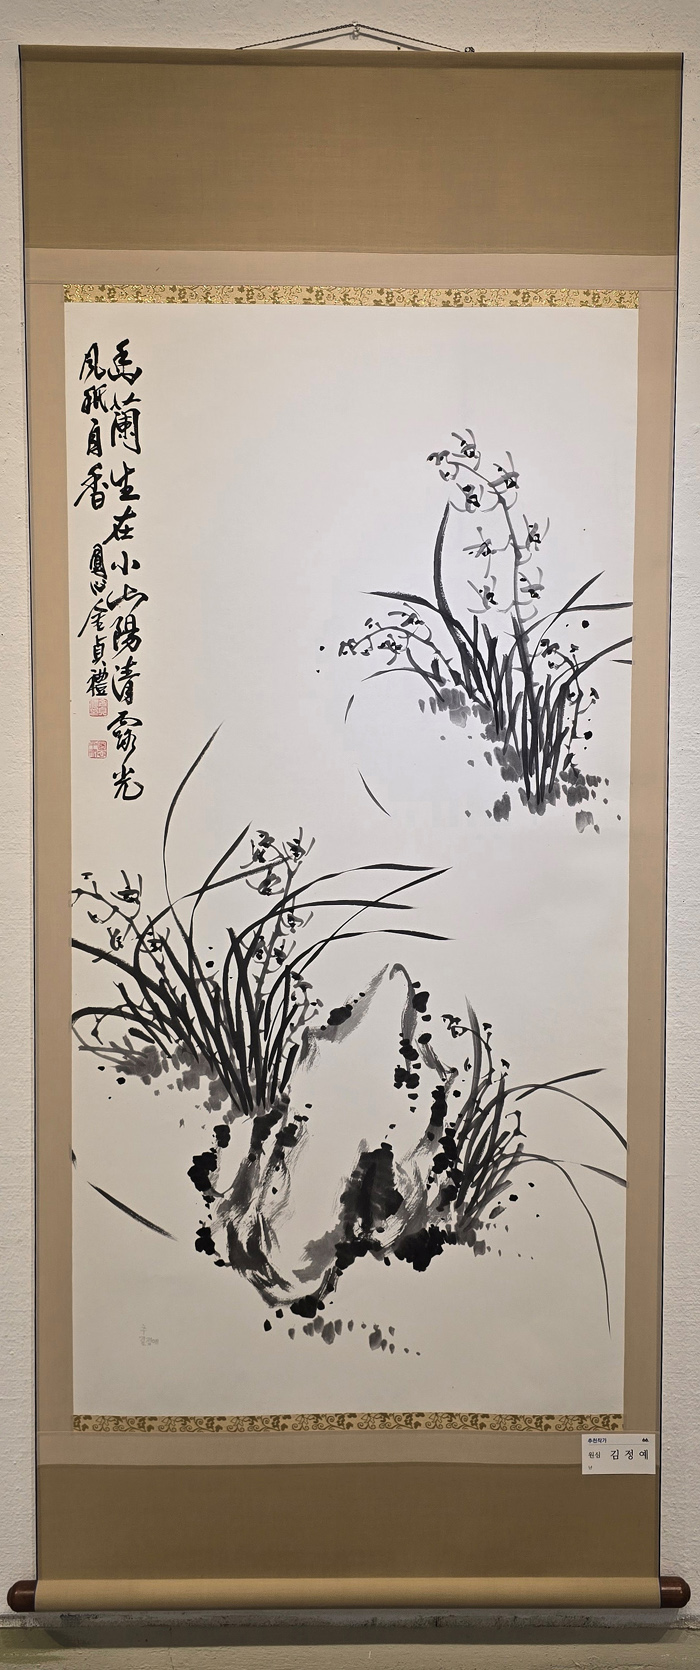 幽蘭生在小山陽清露光
風氣自香 圓心金貞禮
추천작가
원심 김정예
난